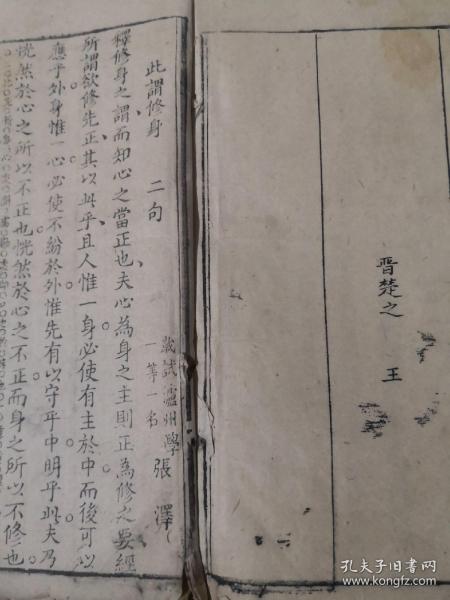 晋楚之 王
此謂修身 二句
歲試瀘州學
一等一名
張澤
釋修身之謂而知心之當正也夫心為身之主則正為修之要經
所謂欲修先正其以此乎且人惟一身必使有主於中而後可以
應乎外身惟一心必使不紛於外惟先有以守乎中明乎此夫乃
恍然於心之所以不正也恍然於心之不正而身之所以不修也
孔夫子旧书网
www.kongfz.com